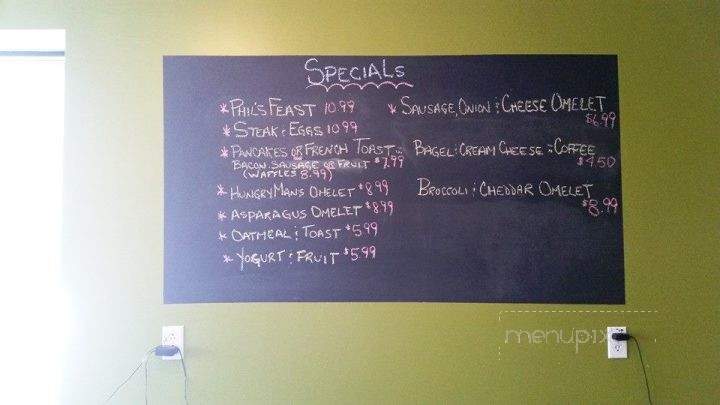 SPECIALS
* PHIL'S FEAST 10.99
* STEAK & EGGS 10.99
* PANCAKES OR FRENCH TOAST...
BACON, SAUSAGE OR FRUIT $7.99
(WAFFLES 8.99)
* HUNGRY MANS OMELET $8.99
* ASPARAGUS OMELET $8.99
* OATMEAL & TOAST $5.99
* YOGURT & FRUIT $5.99
* SAUSAGE, ONION & CHEESE OMELET
$6.99
BAGEL & CREAM CHEESE & COFFEE
$4.50
BROCCOLI & CHEDDAR OMELET
$8.99
menupix